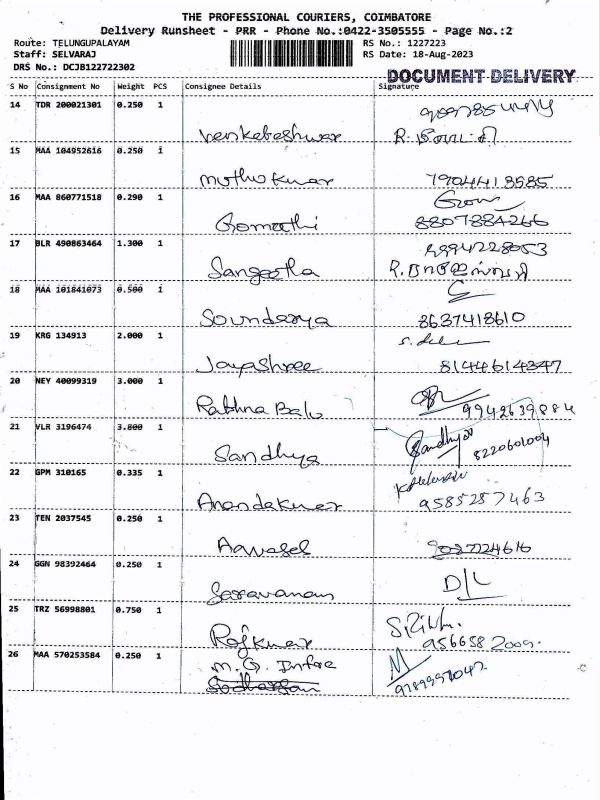 THE PROFESSIONAL COURIERS, COIMBATORE
Delivery Runsheet - PRR - Phone No.:0422-3505555 - Page No.:2
Route: TELUNGUPALAYAM RS No.: 1227223
Staff: SELVARAJ RS Date: 18-Aug-2023
DRS No.: DCJB122722302
DOCUMENT DELIVERY
S No Consignment No Weight PCS Consignee Details Signature
14 TDR 200021301 0.250 1
Venkateshwar R.
15 MAA 104952616 0.250 1
Muthu Kumar 7904418585
16 MAA 860771518 0.290 1
Gomathi 8807884266
17 BLR 490863464 1.300 1
Sangeetha
18 MAA 101841073 0.500 1
Soundarya 8637418610
19 KRG 134913 2.000 1
Jayashree 8144614347
20 NEY 40099319 3.000 1
Rathna Balu 9942639884
21 VLR 3196474 3.800 1
Sandhya Sandhya 8220601004
22 GPM 310165 0.335 1
Anandakumar 9585287463
23 TEN 2037545 0.250 1
24 GGN 98392464 0.250 1
Saravanan D/L
25 TRZ 56998801 0.750 1
Rajkumar 9566582009.
26 MAA 570253584 0.250 1
M.G. Infra